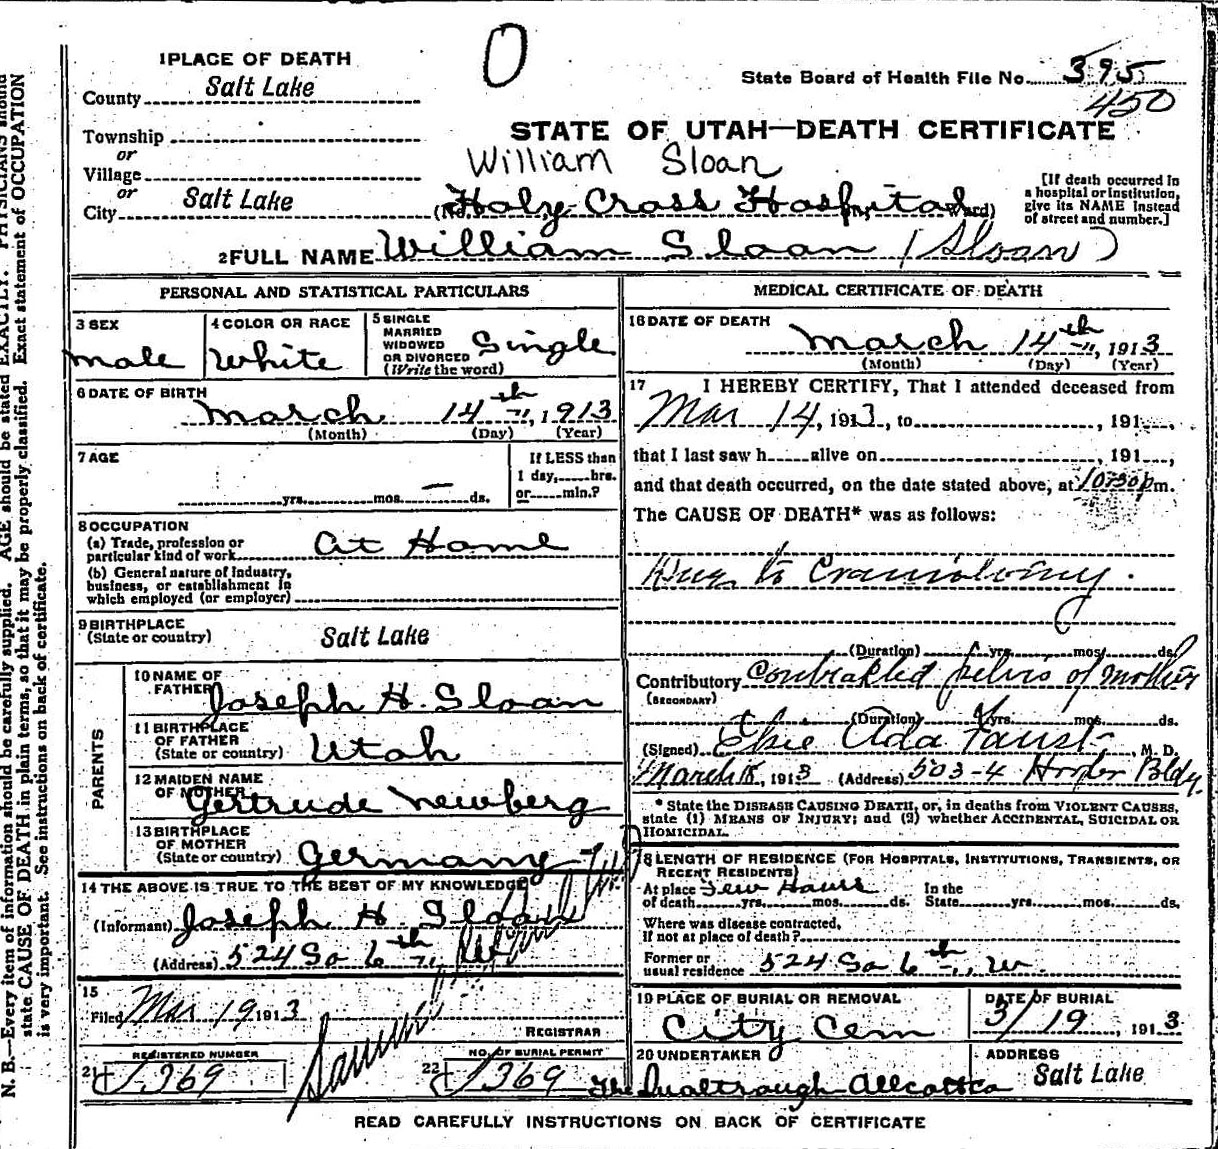 O
1 PLACE OF DEATH
County Salt Lake
State Board of Health File No. 395
450
Township
or
Village
or
City Salt Lake
STATE OF UTAH—DEATH CERTIFICATE
William Sloan
(No. Holy Cross Hospital Ward)
[If death occurred in
a hospital or institution,
give its NAME instead
of street and number.]
2 FULL NAME William Sloan (Sloan)
PERSONAL AND STATISTICAL PARTICULARS
3 SEX
male
4 COLOR OR RACE
White
5 SINGLE
MARRIED
WIDOWED
OR DIVORCED
(Write the word)
Single
6 DATE OF BIRTH
March 14th, 1913
(Month) (Day) (Year)
7 AGE
yrs. mos. — ds.
If LESS than
1 day, hrs.
or min.?
8 OCCUPATION
(a) Trade, profession or
particular kind of work At Home
(b) General nature of industry,
business, or establishment in
which employed (or employer)
9 BIRTHPLACE
(State or country) Salt Lake
PARENTS
10 NAME OF
FATHER Joseph H. Sloan
11 BIRTHPLACE
OF FATHER
(State or country) Utah
12 MAIDEN NAME
OF MOTHER Gertrude Newberg
13 BIRTHPLACE
OF MOTHER
(State or country) Germany
14 THE ABOVE IS TRUE TO THE BEST OF MY KNOWLEDGE
(Informant) Joseph H. Sloan
(Address) 524 So 6th
15
Filed Mar 19 1913
REGISTRAR
REGISTERED NUMBER
21 1369
NO. OF BURIAL PERMIT
22 1369
MEDICAL CERTIFICATE OF DEATH
16 DATE OF DEATH
March 14th, 1913
(Month) (Day) (Year)
17 I HEREBY CERTIFY, That I attended deceased from
Mar 14, 1913, to , 191 ,
that I last saw h alive on , 191 ,
and that death occurred, on the date stated above, at 10:30 p m.
The CAUSE OF DEATH* was as follows:
Due to Craniotomy.
(Duration) yrs. mos. ds.
Contributory contracted pelvis of mother
(SECONDARY)
(Duration) yrs. mos. ds.
(Signed) Elsie Ada Faust, M. D.
March 18, 1913 (Address) 503-4 Hooper Bldg.
* State the DISEASE CAUSING DEATH, or, in deaths from VIOLENT CAUSES,
state (1) MEANS OF INJURY; and (2) whether ACCIDENTAL, SUICIDAL OR
HOMICIDAL.
18 LENGTH OF RESIDENCE (FOR HOSPITALS, INSTITUTIONS, TRANSIENTS, OR
RECENT RESIDENTS)
At place Few Hours In the
of death yrs. mos. ds. State yrs. mos. ds.
Where was disease contracted,
If not at place of death?
Former or
usual residence 524 So 6th W.
19 PLACE OF BURIAL OR REMOVAL
City Cem
DATE OF BURIAL
3/19, 1913
20 UNDERTAKER
The Qualtrough Allcott Co
ADDRESS
Salt Lake
READ CAREFULLY INSTRUCTIONS ON BACK OF CERTIFICATE
N. B.—Every item of information should be carefully supplied. AGE should be stated EXACTLY. PHYSICIANS should
state CAUSE OF DEATH in plain terms, so that it may be properly classified. Exact statement of OCCUPATION
is very important. See instructions on back of certificate.